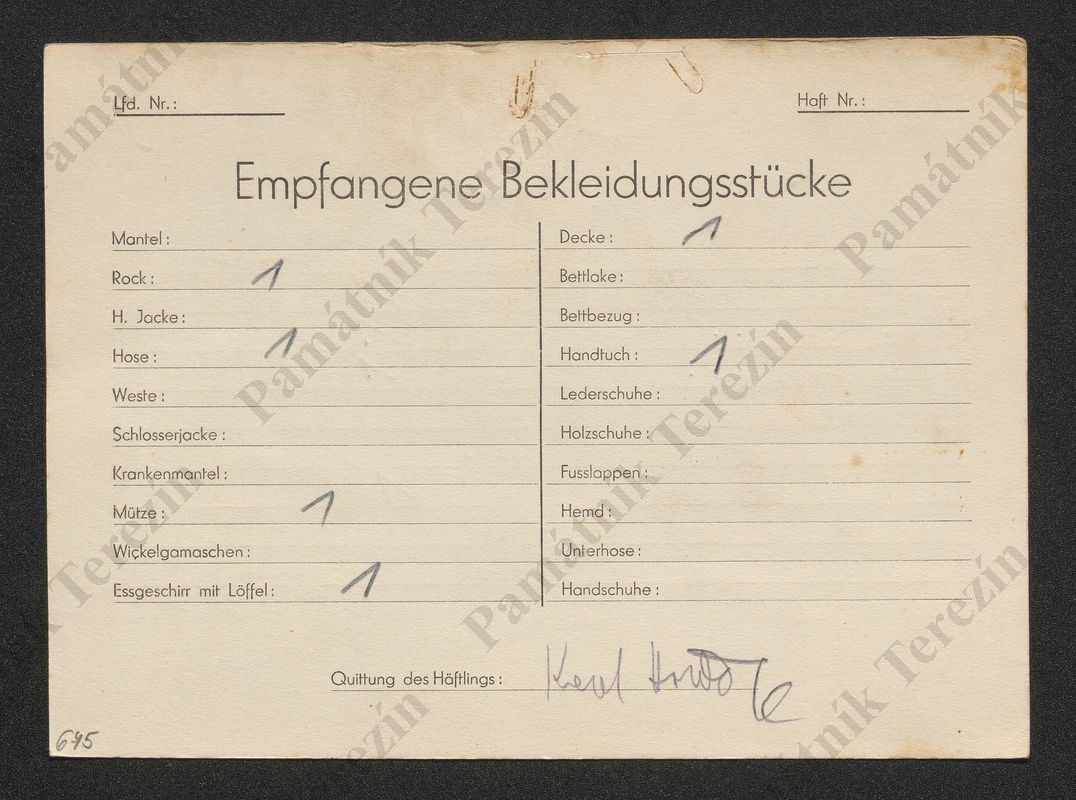 Lfd. Nr.:
Haft Nr.:
Empfangene Bekleidungsstücke
Mantel:
Rock: 1
H. Jacke:
Hose: 1
Weste:
Schlosserjacke:
Krankenmantel:
Mütze: 1
Wickelgamaschen:
Essgeschirr mit Löffel: 1
Decke: 1
Bettlake:
Bettbezug:
Handtuch: 1
Lederschuhe:
Holzschuhe:
Fusslappen:
Hemd:
Unterhose:
Handschuhe:
Quittung des Häftlings: Karel
645
Památník Terezín
Památník Terezín
Památník Terezín
Památník Terezín